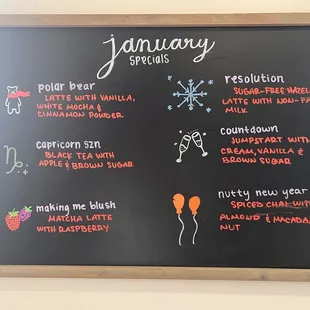 january
specials
polar bear
latte with vanilla,
white mocha &
cinnamon powder
capricorn szn
black tea with
apple & brown sugar
making me blush
matcha latte
with raspberry
resolution
sugar-free
latte with
milk
countdown
jumpstart with
cream, vanilla &
brown sugar
nutty new year
spiced chai
almond &
nut